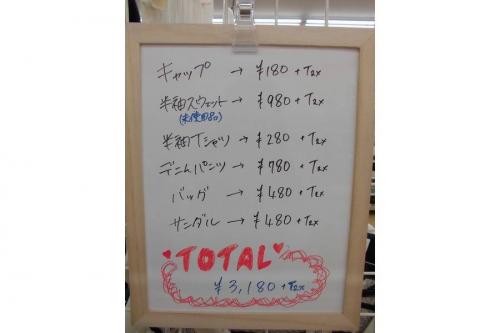 キャップ → ¥180+Tax
半袖スウェット → ¥980+Tax
(未使用品)
半袖Tシャツ → ¥280+Tax
デニムパンツ → ¥780+Tax
バッグ → ¥480+Tax
サンダル → ¥480+Tax
♥TOTAL♥
¥3,180+Tax